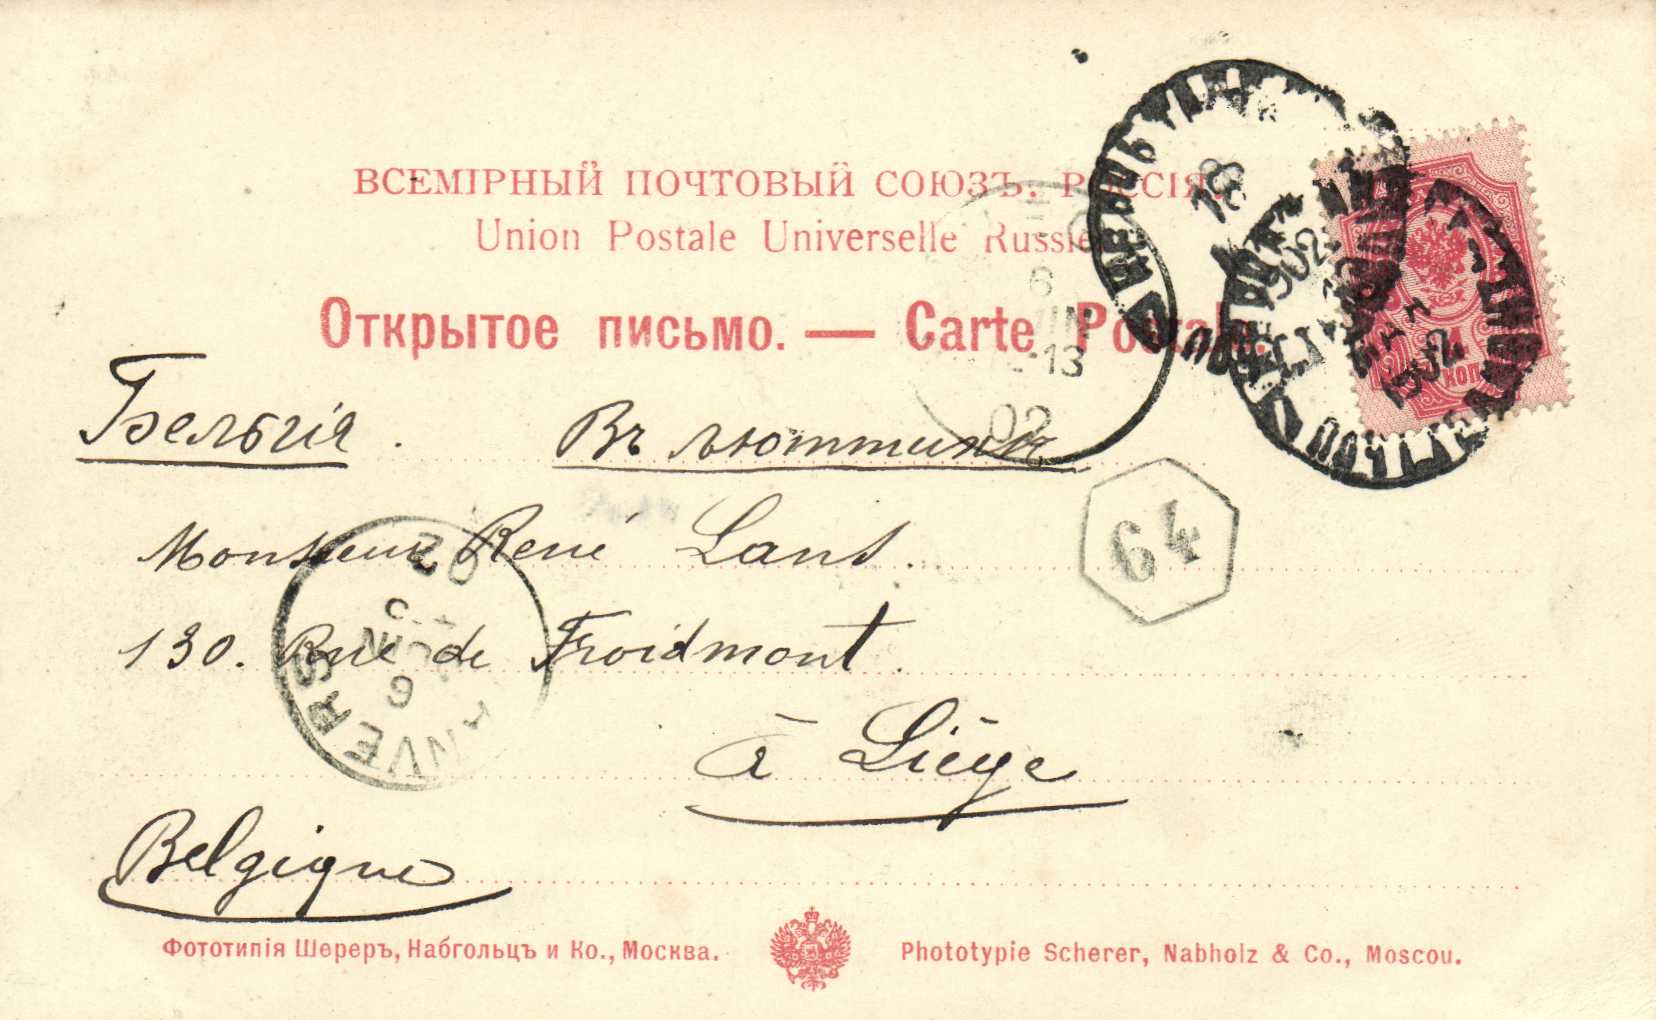 ВСЕМІРНЫЙ ПОЧТОВЫЙ СОЮЗЪ. РОССІЯ.
Union Postale Universelle Russie
Открытое письмо. — Carte Postale.
18
902
6
JUIN
13
02
КОП
Бельгія. Въ Льюттихъ
64
Monsieur René Lans.
130. Rue de Froidmont.
à Liége
Belgique
ANVERS
6
JUIN
02
Фототипія Шереръ, Набгольцъ и Ко., Москва.
Phototypie Scherer, Nabholz & Co., Moscou.